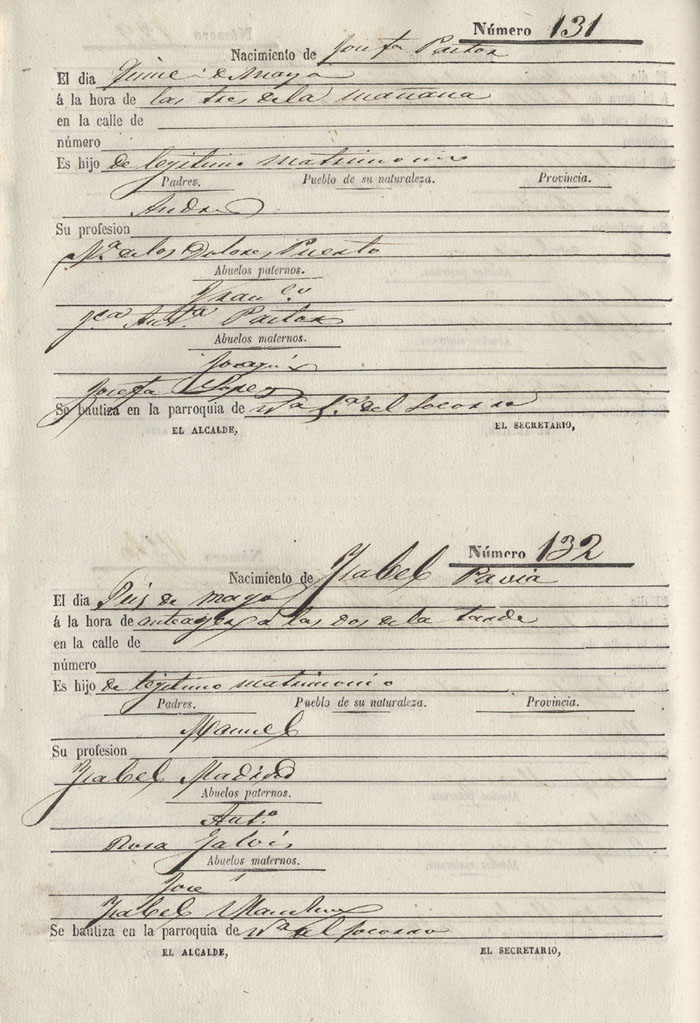 Número 131
Nacimiento de Josefa Pastor
El dia de Mayo
á la hora de las tres de la mañana
en la calle de
número
Es hijo de legitimo matrimonio
Padres. Pueblo de su naturaleza. Provincia.
Andres
Su profesion
Mª. de los Dolores Puerto
Abuelos paternos.
Franco.
Antª Pastor
Abuelos maternos.
Joaquin
Josefa Lopez
Se bautiza en la parroquia de Nª Sª. del Socorro
EL ALCALDE, EL SECRETARIO,
Número 132
Nacimiento de Ysabel Pavia
El dia Seis de mayo
á la hora de anteayer a las dos de la tarde
en la calle de
número
Es hijo de legitimo matrimonio
Padres. Pueblo de su naturaleza. Provincia.
Manuel
Su profesion
Ysabel Madrid
Abuelos paternos.
Antº
Rosa Galvis
Abuelos maternos.
José
Ysabel
Se bautiza en la parroquia de Nª del Socorro
EL ALCALDE, EL SECRETARIO,